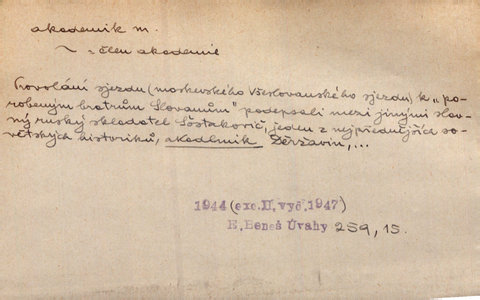 akademik m.
~ . člen akademie
Provolání sjezdu (moskevského Všeslovanského sjezdu) k „po-
robeným bratrům Slovanům" podepsali mezi jinými slav-
ný ruský skladatel Šostakovič, jeden z nejpřednějších so-
větských historiků, akademik Děržavin, ...
1944 (exc. II. vyd. 1947)
E. Beneš Úvahy 259, 15.